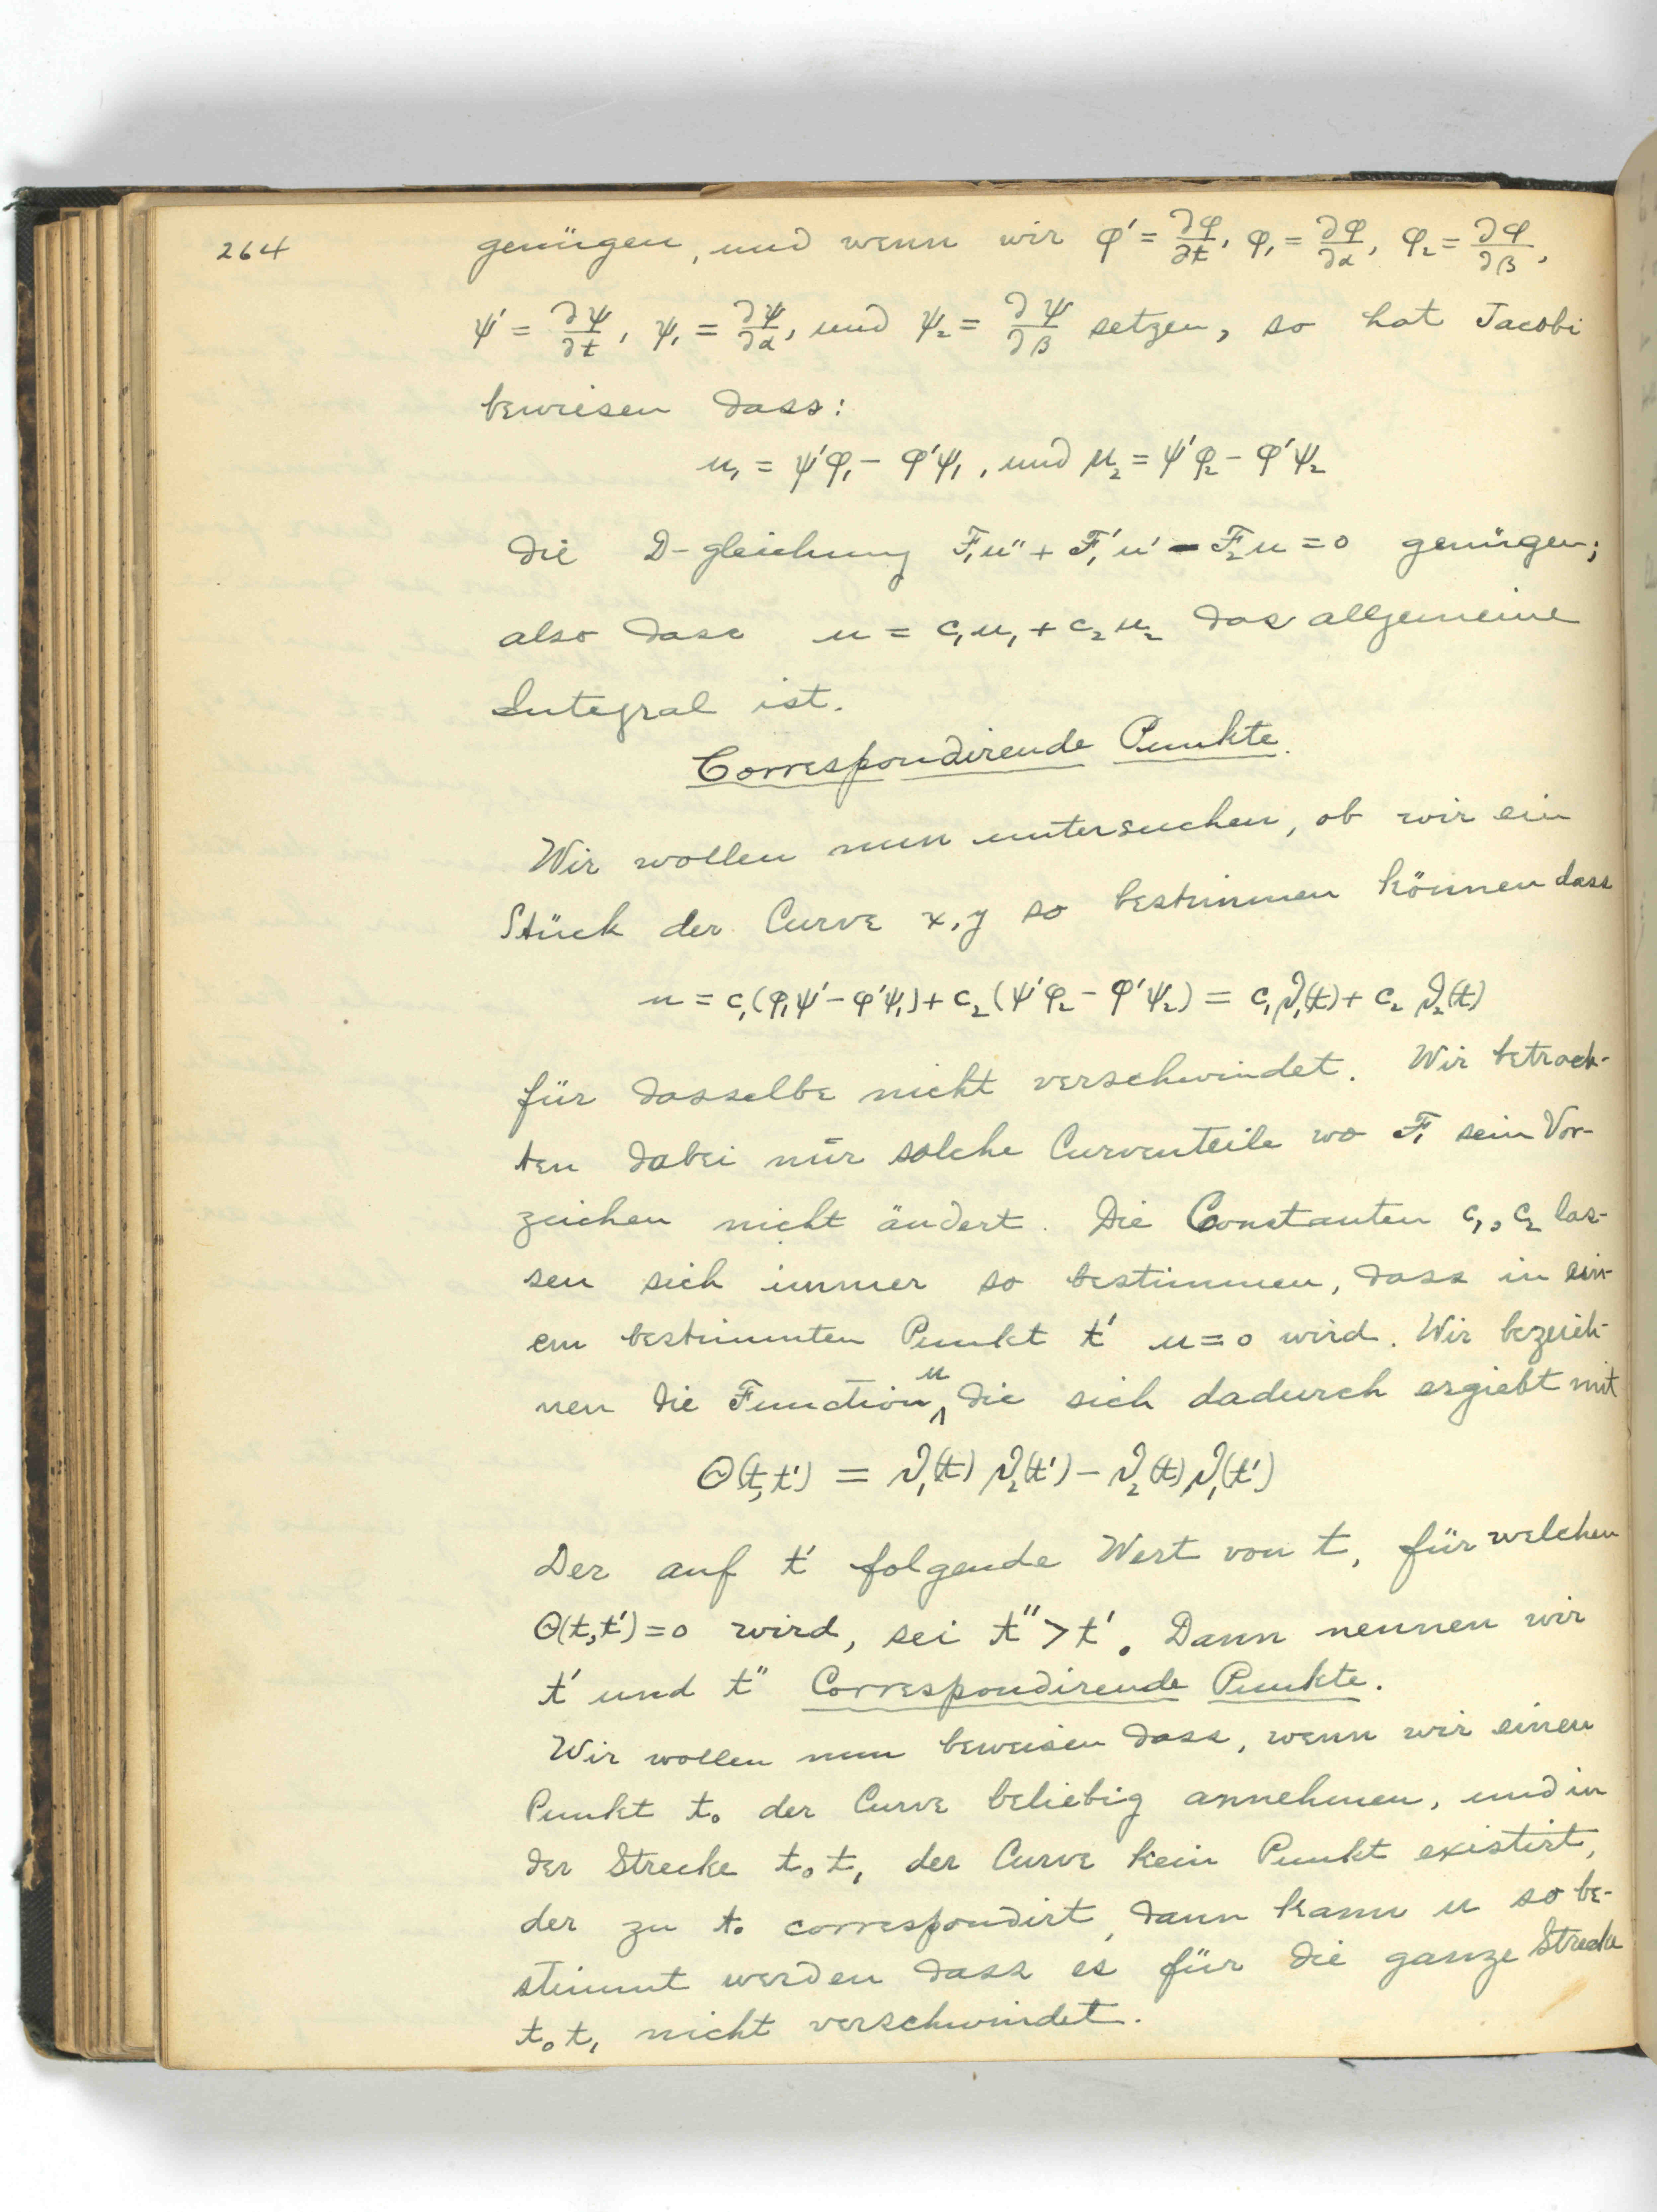 264
genügen, und wenn wir φ' = ∂φ/∂t, φ₁ = ∂φ/∂α, φ₂ = ∂φ/∂β,
ψ' = ∂ψ/∂t, ψ₁ = ∂ψ/∂α, und ψ₂ = ∂ψ/∂β setzen, so hat Jacobi
bewiesen dass:
u₁ = ψ'φ₁ - φ'ψ₁, und u₂ = ψ'φ₂ - φ'ψ₂
die D-gleichung F₁u'' + F₁'u' - F₂u = 0 genügen;
also dass u = c₁u₁ + c₂u₂ das allgemeine
Integral ist.
Correspondirende Punkte.
Wir wollen nun untersuchen, ob wir ein
Stück der Curve x, y so bestimmen können dass
u = c₁(φ₁ψ' - φ'ψ₁) + c₂(ψ'φ₂ - φ'ψ₂) = c₁ϑ₁(t) + c₂ϑ₂(t)
für dasselbe nicht verschwindet. Wir betrach-
ten dabei nur solche Curventeile wo F₁ sein Vor-
zeichen nicht ändert. Die Constanten c₁, c₂ las-
sen sich immer so bestimmen, dass in ein-
em bestimmten Punkt t' u = 0 wird. Wir bezeich-
nen die Function u die sich dadurch ergiebt mit
Θ(t,t') = ϑ₁(t) ϑ₂(t') - ϑ₂(t) ϑ₁(t')
Der auf t' folgende Wert von t, für welchen
Θ(t,t') = 0 wird, sei t'' > t'. Dann nennen wir
t' und t'' Correspondirende Punkte.
Wir wollen nun beweisen dass, wenn wir einen
Punkt t₀ der Curve beliebig annehmen, und in
der Strecke t₀t₁ der Curve kein Punkt existirt,
der zu t₀ correspondirt, dann kann u so be-
stimmt werden dass es für die ganze Strecke
t₀t₁ nicht verschwindet.